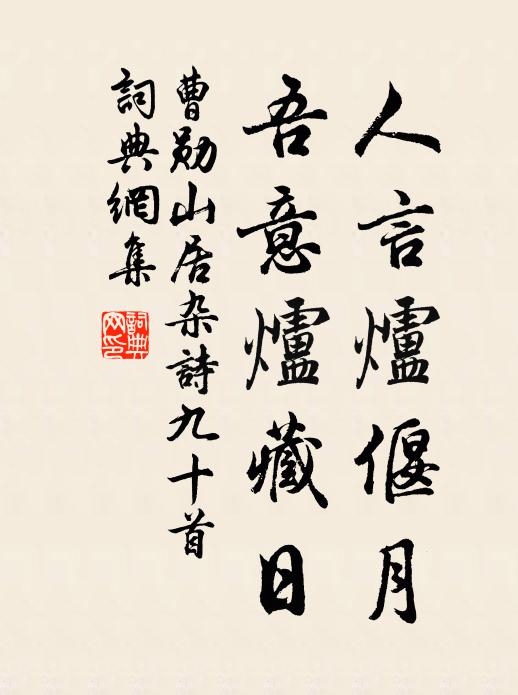 人言爐偃月
吾意爐藏日
曹勛山居杂詩九十首
詞典網集
詞典網印